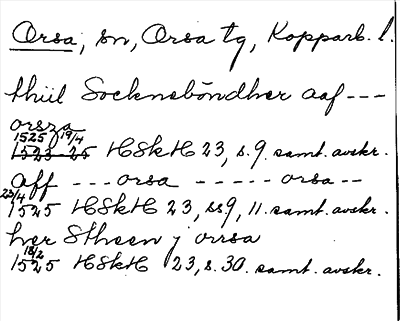 Orsa, sn, Orsa tg, Kopparb. l.
thiil Socknabōndher aaf ---
orsza
1525 19/4
1523-25 HSkH 23, s. 9. samt. avskr.
aff --- orsa ----- orsa --
23/4
1525 HSkH 23, ss 9, 11. samt. avskr.
her Stheen j orrsa
18/2
1525 HSkH 23, s. 30. samt. avskr.